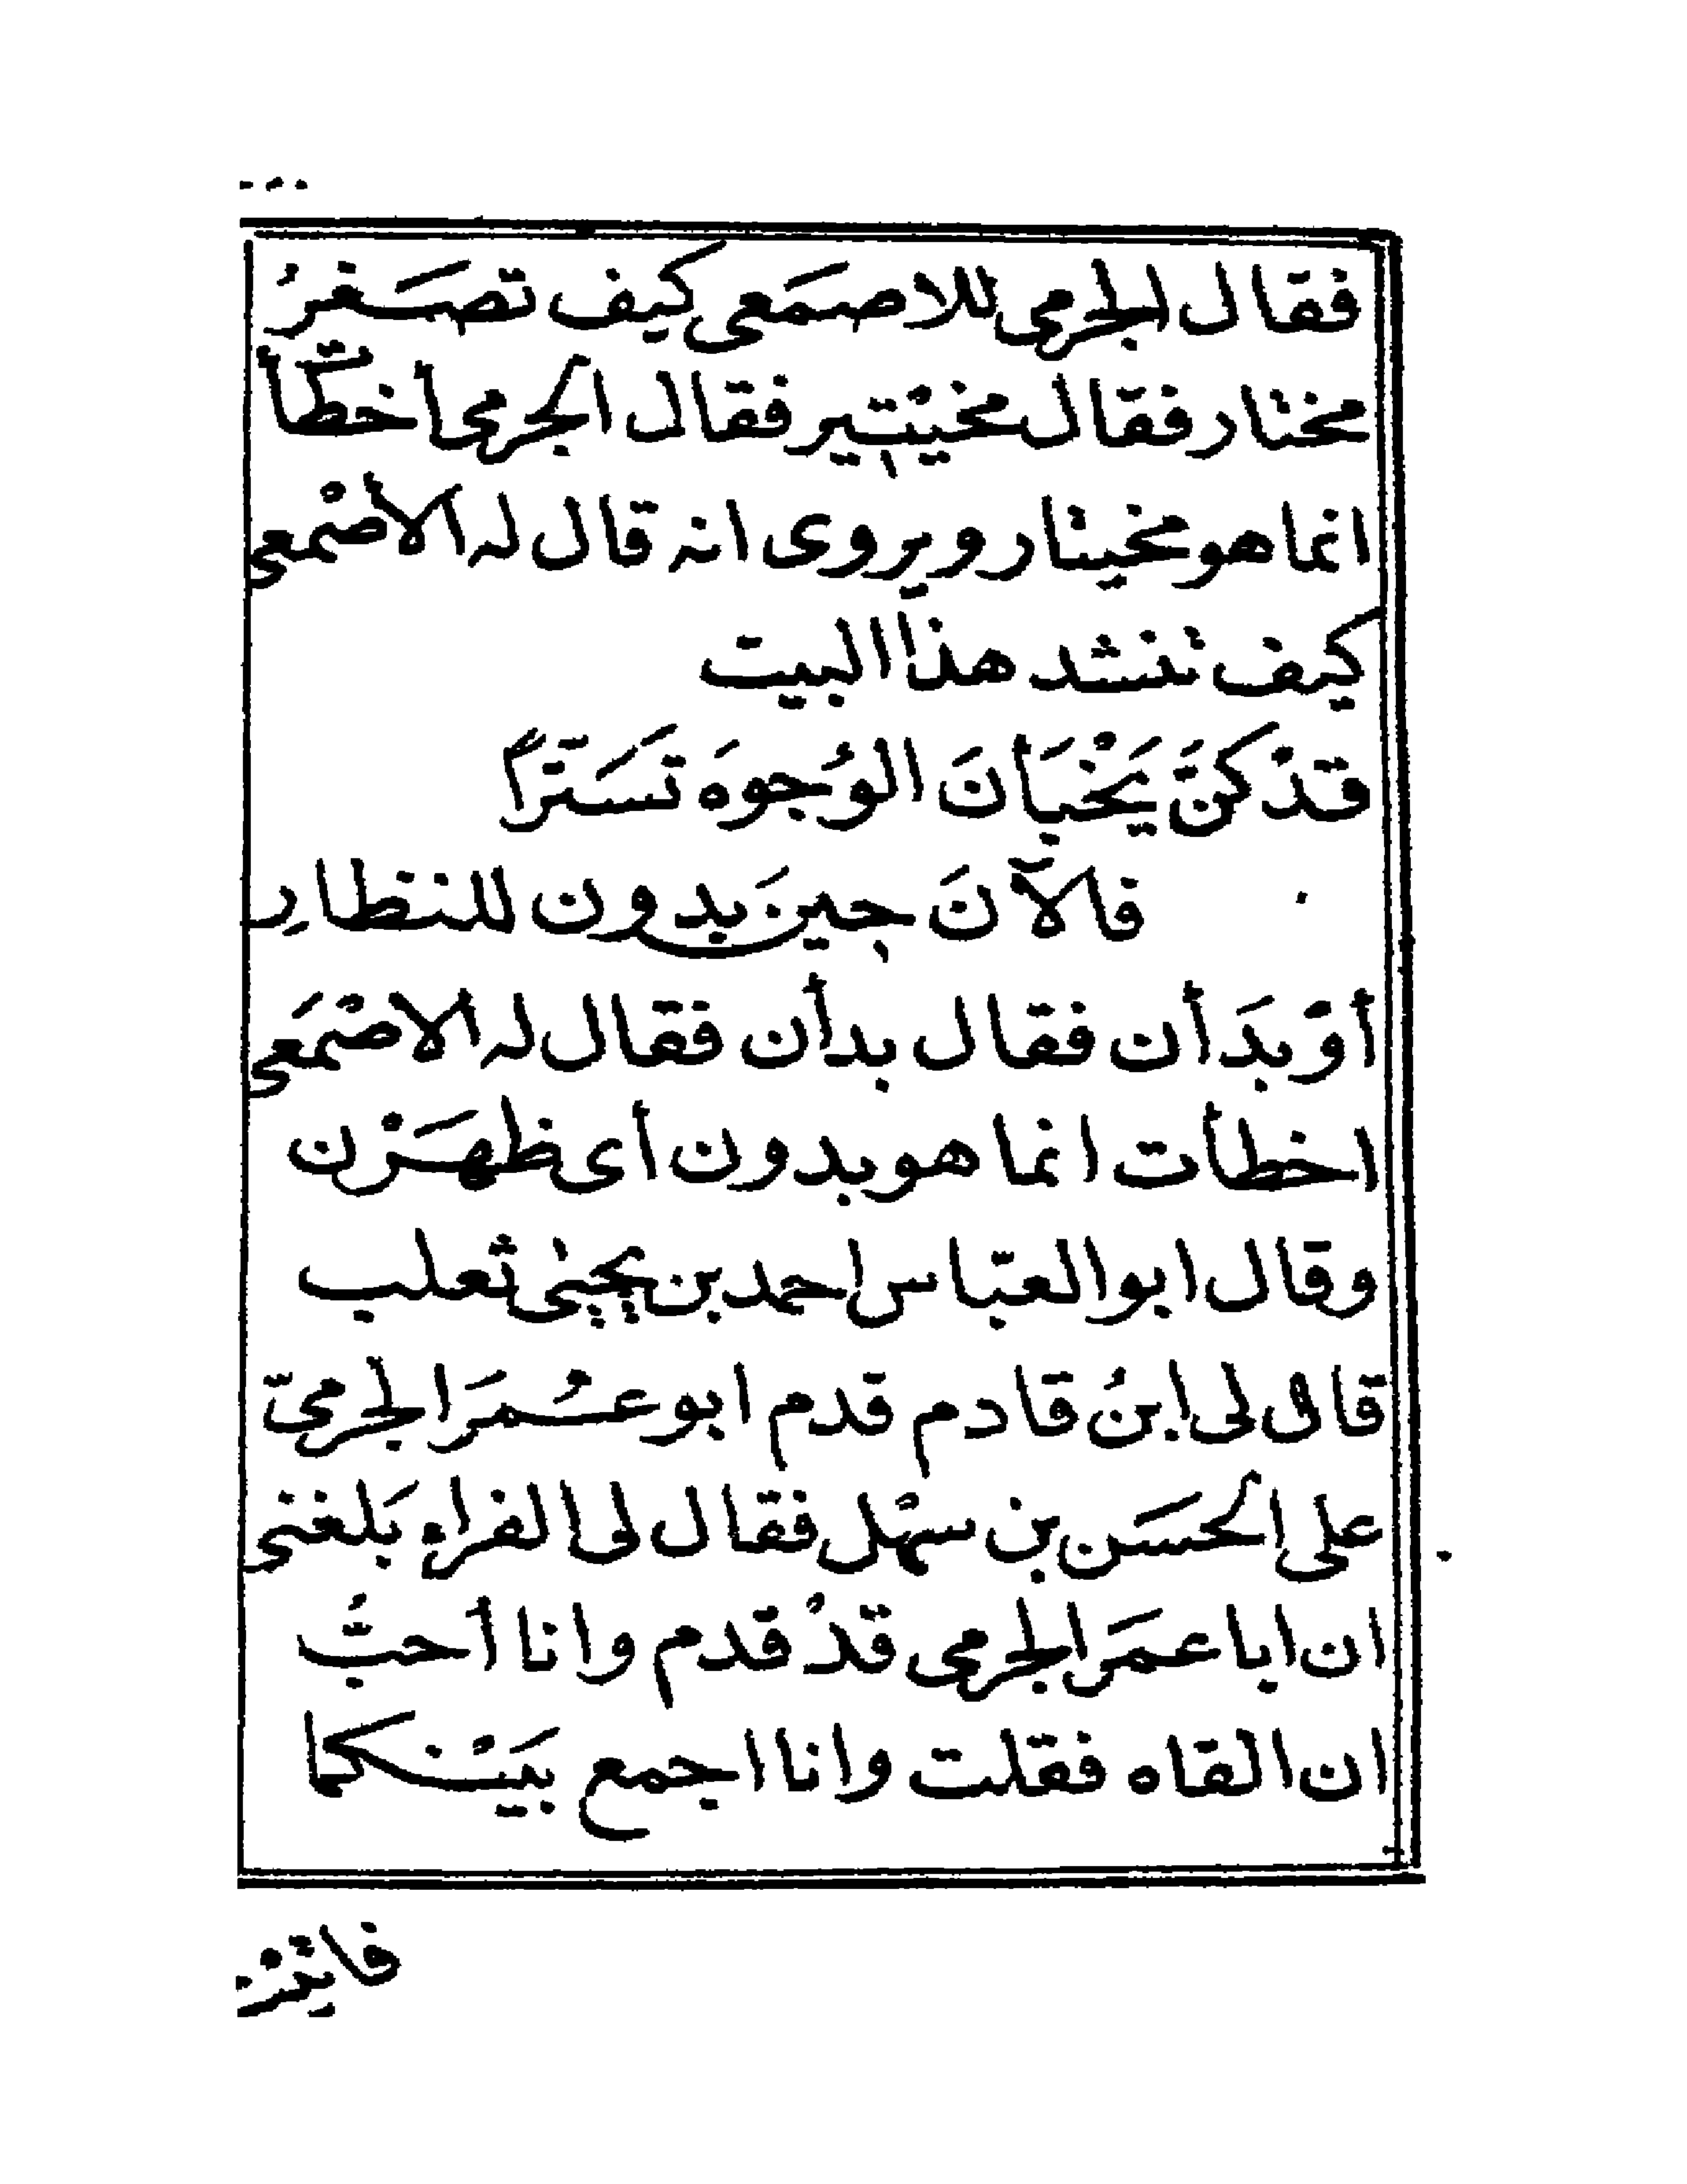 فقال الجرمى للاصمَعى كيف تصَغرُ
مختار فقال مخيْتير فقال الجرمى اخطأتَ
انما هو مخيتار ويروى انه قال له الأصْمعى
كيف تنشد هذا البيت
قدْ كنَّ يَخْبَأنَ الوُجوهَ تَسَتّرًا
فالآنَ حينَ بدون للنظارِ
أوْ بدَأن فقال بدأن فقال له الاصْمَعى
اخطأت انما هو بدون أى ظهَرْن
وقال ابو العبّاس احمد بن يحيىٰ ثعلب
قال لى ابنُ قادم قدم ابو عُمَر الجرمىّ
على الحسَن بن سهْل فقال لى الفراء بَلغنى
ان ابا عمَر الجرمى قدْ قدم وانا أحبُّ
ان القاه فقلت وانا اجمع بَيْنكما